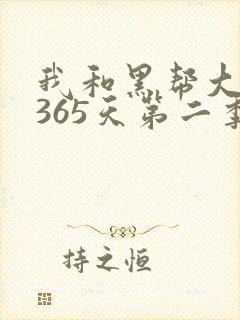 我和黑帮大
365天第二季
持之恒